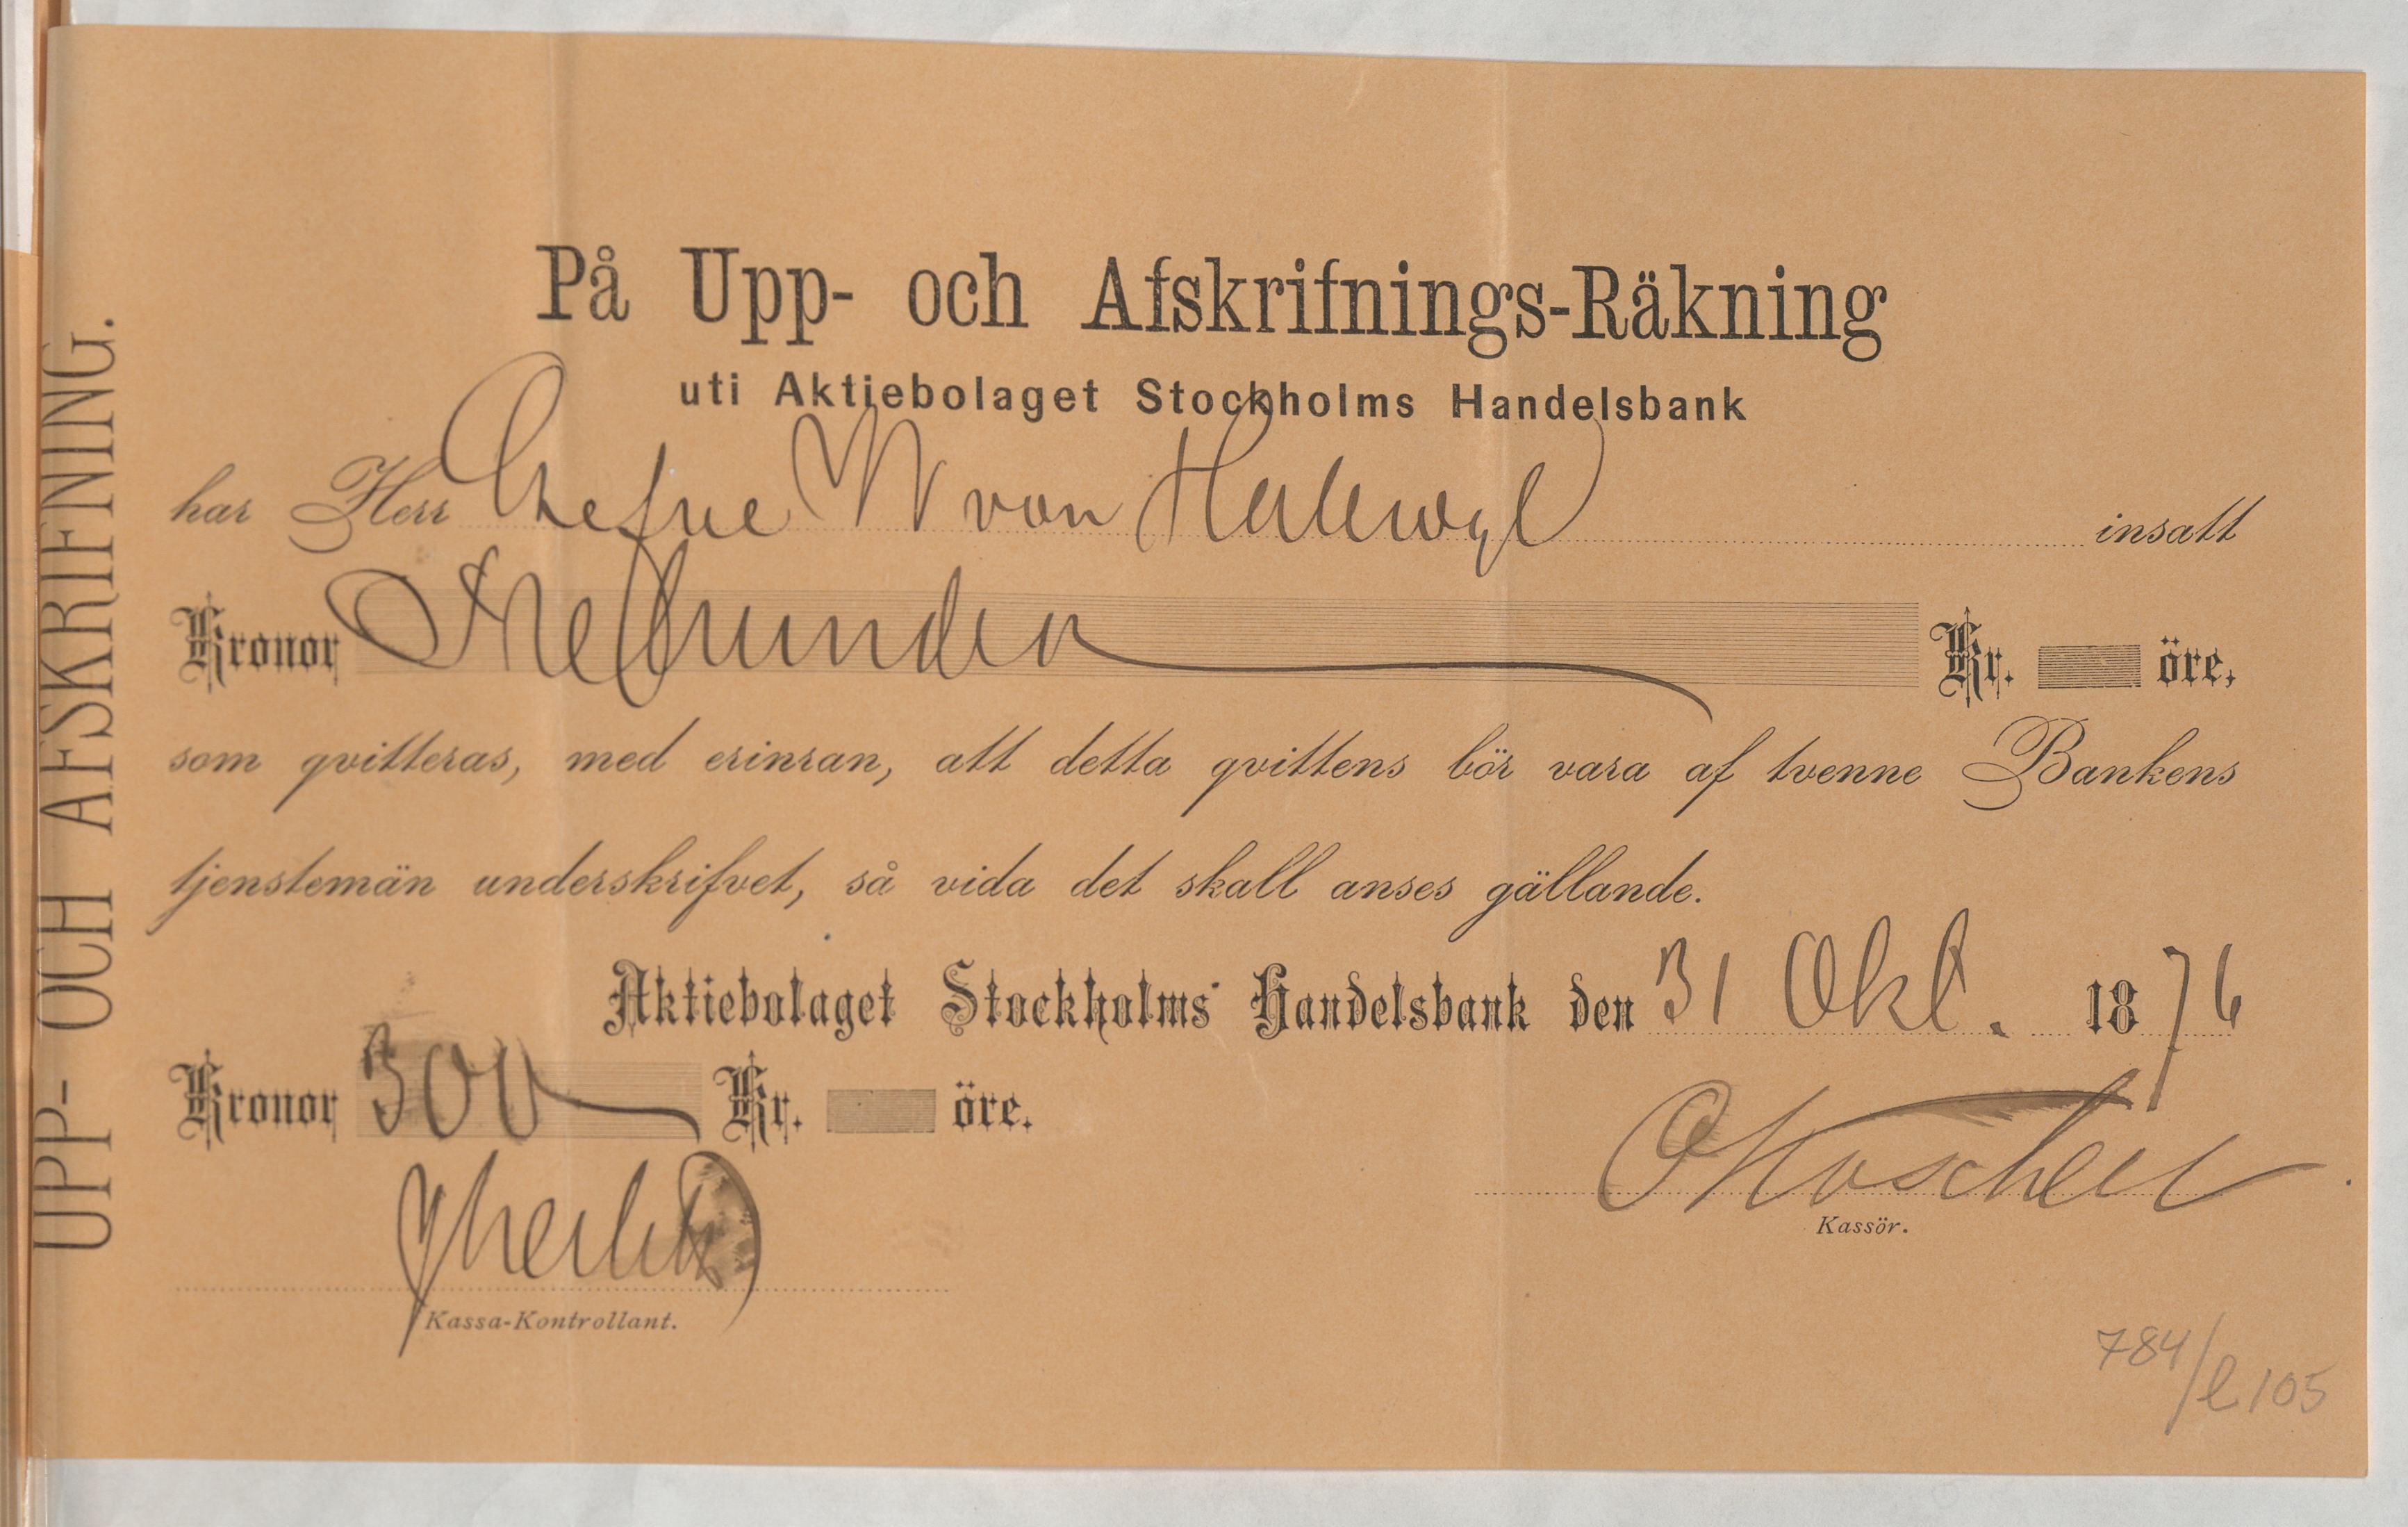 UPP- OCH AFSKRIFNING.
På Upp- och Afskrifnings-Räkning
uti Aktiebolaget Stockholms Handelsbank
har Herr Grefve W von Hallwyl insatt
Kronor Trehundra Kr. öre,
som qvitteras, med erinran, att detta qvittens bör vara af tvenne Bankens
tjenstemän underskrifvet, så vida det skall anses gällande.
Aktiebolaget Stockholms Handelsbank den 31 Okt. 1876
Kronor 300 Kr. öre.
Kassör.
Kassa-Kontrollant.
784/l 105